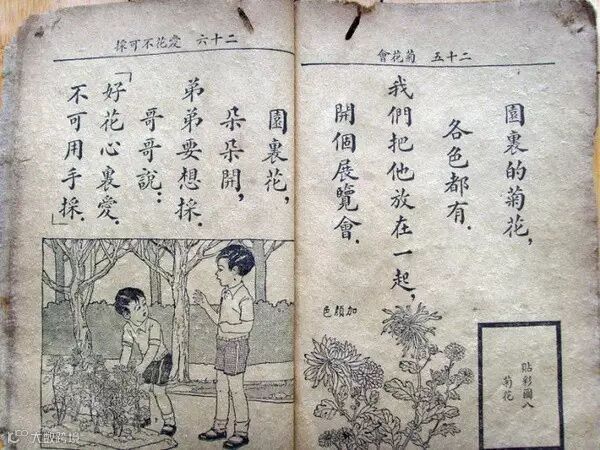 二十五 菊花會
園裏的菊花,
各色都有.
我們把他放在一起,
開個展覽會.
貼彩圖八
菊花
加顏色
二十六 愛花不可採
園裏花,
朵朵開,
弟弟要想採.
哥哥說:
「好花心裏愛.
不可用手採.」
大数跨境